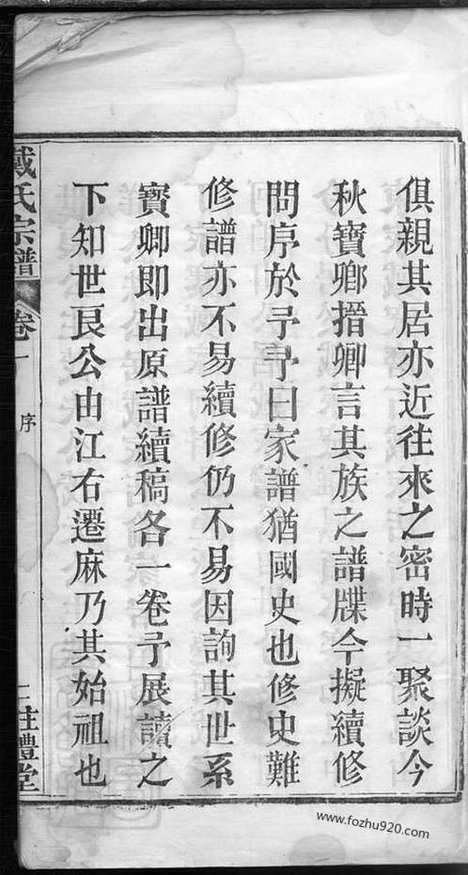 俱親其居亦近往來之密時一聚談今
秋寶卿搢卿言其族之譜牒今擬續修
問序於予予曰家譜猶國史也修史難
修譜亦不易續修仍不易因詢其世系
寶卿即出原譜續稿各一卷予展讀之
下知世艮公由江右遷麻乃其始祖也
戴氏宗譜
卷一
序
註禮堂
www.fozhu920.com